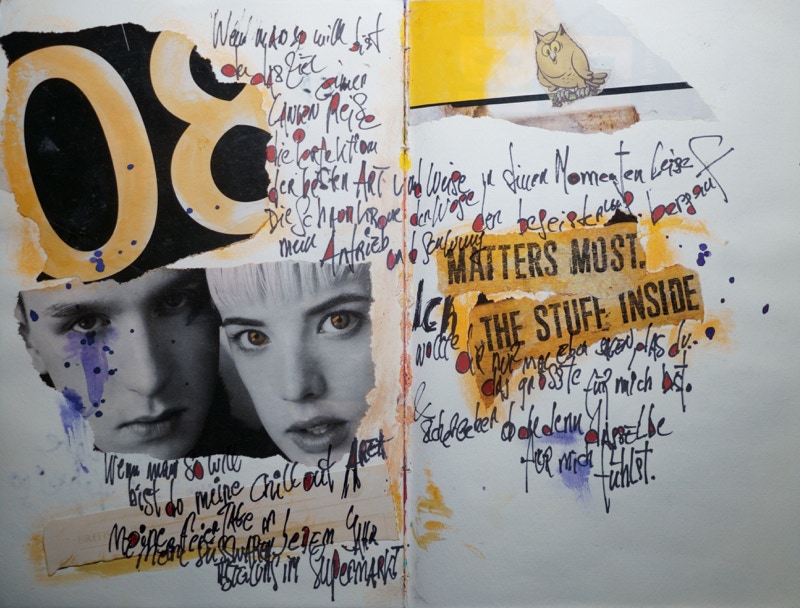 08
Wenn man so will bist
du das Ziel
einer
LANGEN Reise
die Perfektion
der besten ART und Weise in stillen Momenten leise
Die Schaumkrone der Woge der Begeisterung bergauf
mein Antrieb und Schwung
MATTERS MOST.
THE STUFF INSIDE
Ich
wollte dir nur mal eben sagen, das du
das größte für mich bist.
& sichergehen ob du denn dasselbe
für mich fühlst.
Wenn man so will
bist du meine Chill out AREA
Meine Feiertage in jedem JAHR
Meine Süßwarenabteilung im Supermarkt